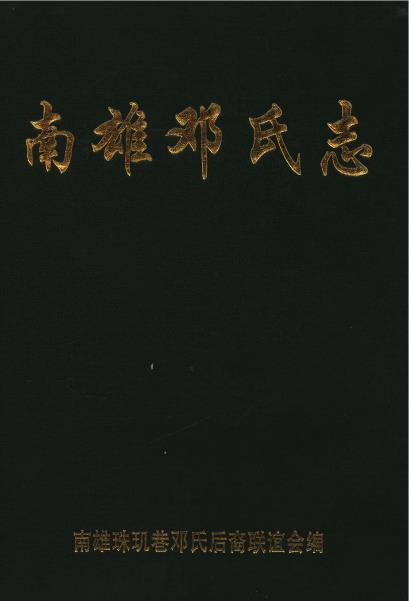 南雄邓氏志
南雄珠玑巷邓氏后裔联谊会编